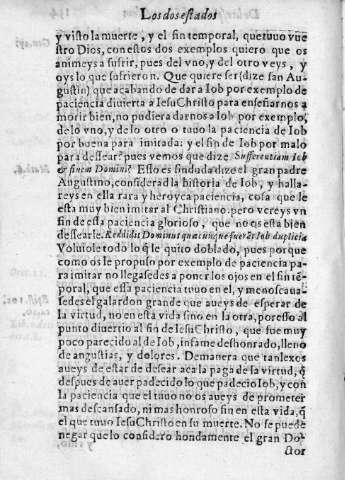 Los dos estados
y visto la muerte, y el fin temporal, que tuuo vue
stro Dios, con estos dos exemplos quiero que os
animeys a sufrir, pues del vno, y del otro veys, y
oys lo que sufrieron. Que quiere ser (dize san Au-
gustin) que acabando de dar a Iob por exemplo de
paciencia diuierta a Iesu Christo para enseñarnos a
morir bien, no pudiera darnos a Iob por exemplo,
de lo vno, y de lo otro o tuuo la paciencia de Iob
por buena para imitada: y el fin de Iob por malo
para dessear? pues vemos que dize Sufferentiam Iob
& finem Domini? Esso es sin duda dize el gran padre
Augustino, considerad la historia de Iob, y halla-
reys en ella rara y heroyca paciencia, cosa que le
esta muy bien imitar al Christiano. pero vereys vn
fin de esta paciencia glorioso, que no os esta bien
dessearle. Reddidit Dominus quæcunque fuerāt Iob duplicia
Voluiole todo lo q̃ le quito doblado, pues porque
como os le propuso por exemplo de paciencia pa-
ra imitar no llegassedes a poner los ojos en el fin tē-
poral, que essa paciencia tuuo en el, y menoscaua-
sedes el galardon grande que aueys de esperar de
la virtud, no en esta vida sino en la otra, por esso al
punto diuertio al fin de Iesu Christo, que fue muy
poco parecido al de Iob, infame deshonrado, lleno
de angustias, y dolores. De manera que tan lexos
aueys de estar de dessear aca la paga de la virtud, q̃
despues de auer padecido lo que padecio Iob, y con
la paciencia que el tuuo no os aueys de prometer
mas descansado, ni mas honroso fin en esta vida, q̃
el que tuuo Iesu Christo en su muerte. No se puede
negar que lo considero hondamente el gran Do-
ctor